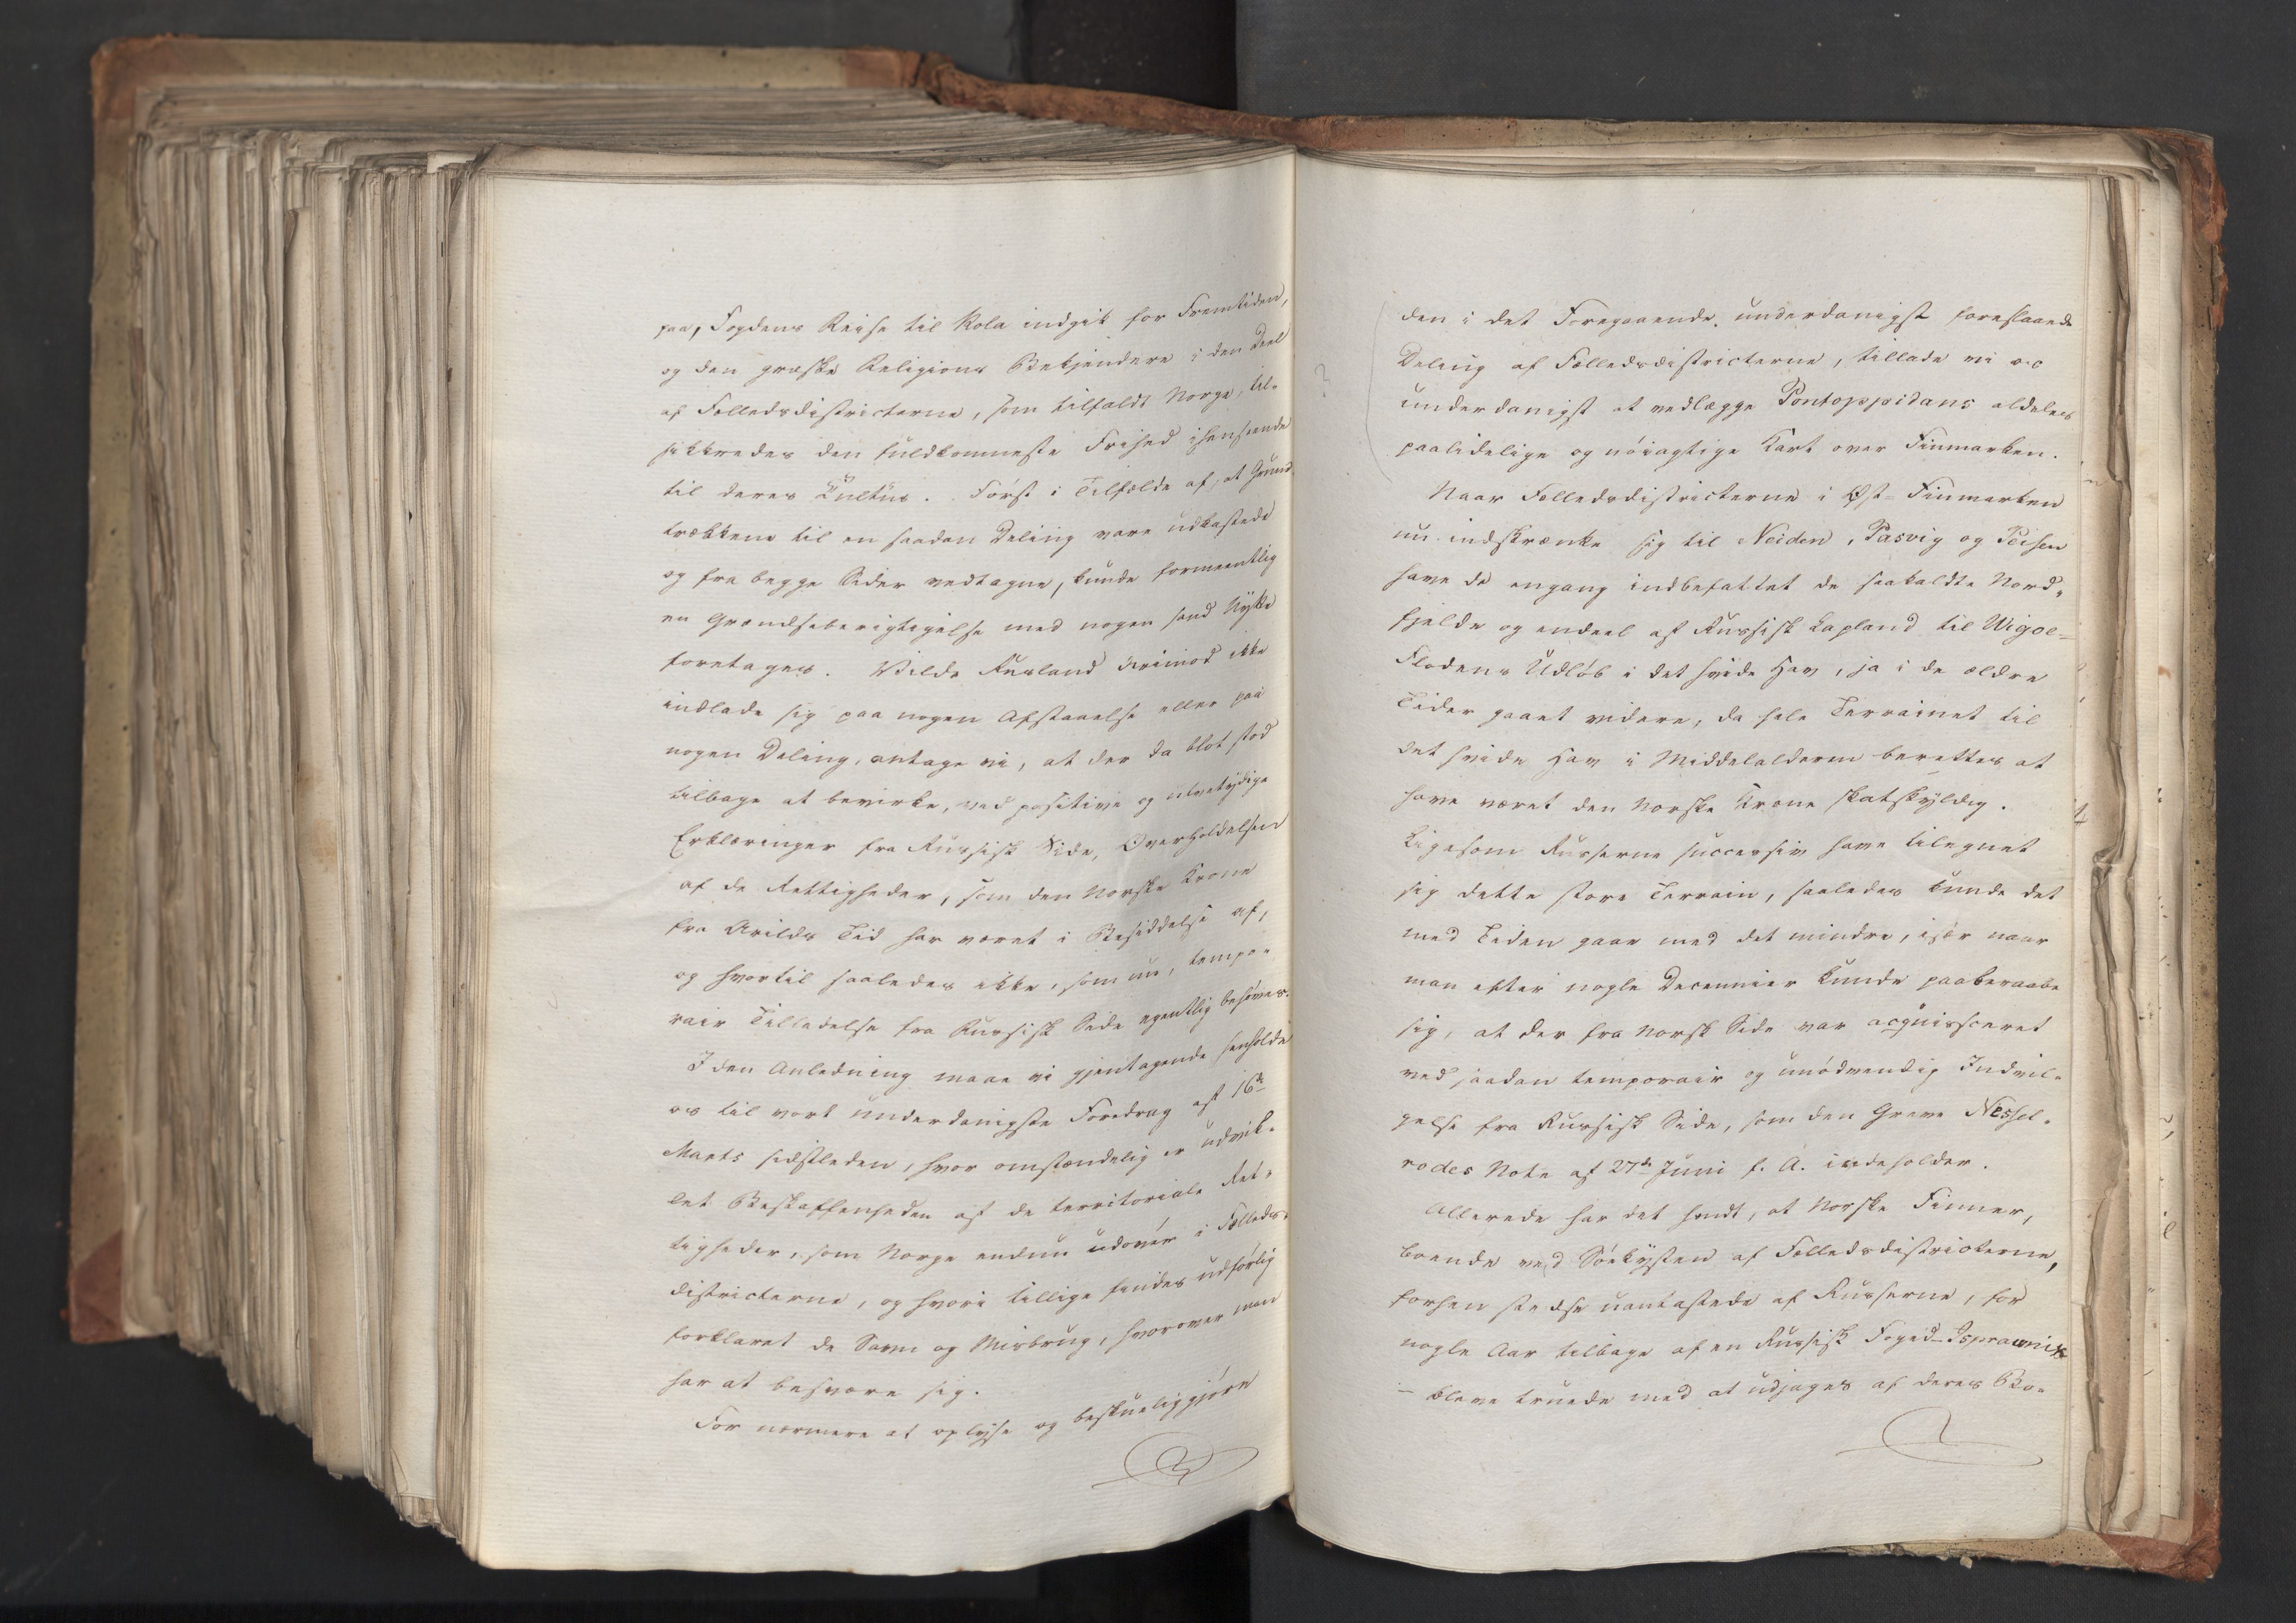 paa, Fogdens Reise til Kola indgik for Fremtiden,
og den græske Religions Bekjendere i den Deel
af Fælledsdistricterne, som tilfaldt Norge, til-
sikkredes den fuldkomneste Frihed ihenseende
til deres Kultus. Först i Tilfælde af, at Grund-
trækkene til en saadan Deling vare udkastede
og fra begge Sider vedtagne, kunde formeentlig
en Grændseberigtigelse med nogen sand Nytte
foretages. Vilde Rusland derimod ikke
indlade sig paa nogen Afstaaelse eller paa
nogen Deling, antage vi, at der da blot stod
tilbage at bevirke, ved positive og utvetydige
Erklæringer fra Russisk Side, Overholdelsen
af de Rettigheder, som den Norske Krone
fra Arilds Tid har været i Besiddelse af,
og hvortil saaledes ikke, som nu, tempo-
rair Tilladelse fra Russisk Side egentlig behöves.
I den Anledning maae vi gjentagende henholde
os til vort underdanigste Foredrag af 16de
Marts sidstleden, hvor omstændelig er udvik-
let Beskaffenheden af de territoriale Ret-
tigheder, som Norge endnu udöver i Fælleds-
districterne, og hvori tillige findes udförlig
forklaret de Savn og Misbrug, hvorover man
har at besvære sig.
For nærmere at oplyse og beskueliggjöre
den i det Foregaaende underdanigst foreslaaede
Deling af Fælledsdistricterne, tillade vi os
underdanigst at vedlægge Pontoppidans aldeles
paalidelige og nöiagtige Kart over Finmarken.
Naar Fælledsdistricterne i Øst-Finmarken
nu indskrænke sig til Neiden, Pasvig og Peisen
have de engang indbefattet de saakaldte Nord-
fjelde og endeel af Russisk Lapland til Wigoe-
Flodens Udlöb i det hvide Hav, ja i de ældre
Tider gaaet videre, da hele Terrainet til
det hvide Hav i Middelalderen berettes at
have været den Norske Krone skatskyldig.
Ligesom Russerne successiv have tilegnet
sig dette store Terrain, saaledes kunde det
med Tiden gaae med det mindre, især naar
man efter nogle Decennier kunde paaberaabe
sig, at der fra Norsk Side var acquisceret
ved saadan temporair og unödvendig Indvil-
gelse fra Russisk Side, som den Greve Nessel-
rodes Note af 27de Juni f. A. indeholder.
Allerede har det hendt, at Norske Finner,
boende ved Söekysten af Fælledsdistricterne,
forhen stedse uantastede af Russerne, for
nogle Aar tilbage af en Russisk Foged-Isprawnik
- bleve truede med at udjages af deres Bo-